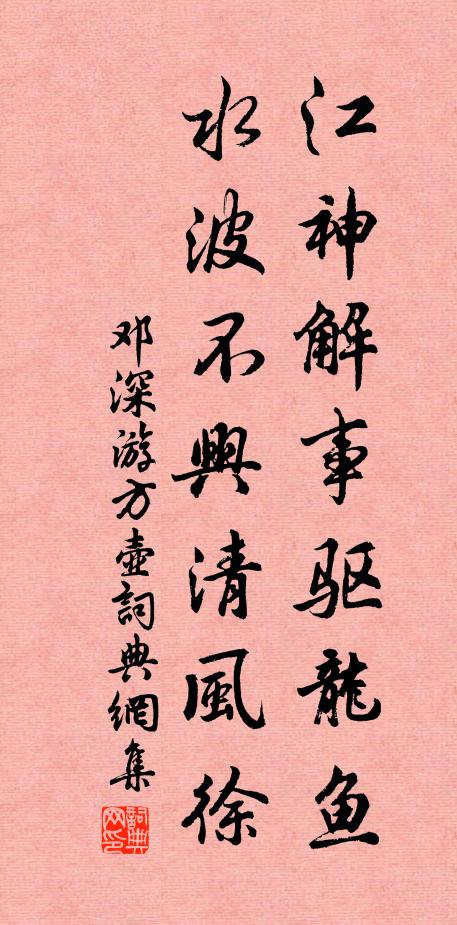 江神解事驱龍鱼
水波不興清風徐
邓深游方壺詞典網集
詞典网印